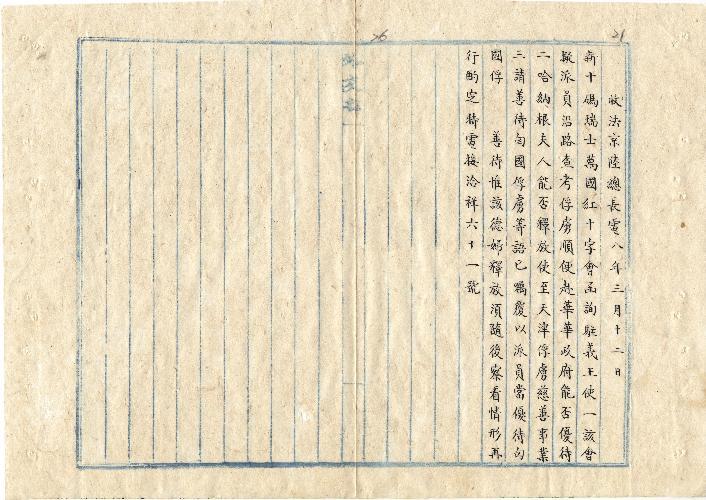 21
26
收法京陸總長電八年三月十二日
新十碼瑞士萬國紅十字會函詢駐義王使一該會
擬派員沿路查考俘虜順便赴華華政府能否優待
二哈納根夫人能否釋放使至天津俘虜慈善事業
三請善待匈國俘虜等語已囑覆以派員當優待匈
國俘 善待惟該德婦釋放須隨後察看情形再
行酌定特電接洽祥六十一號